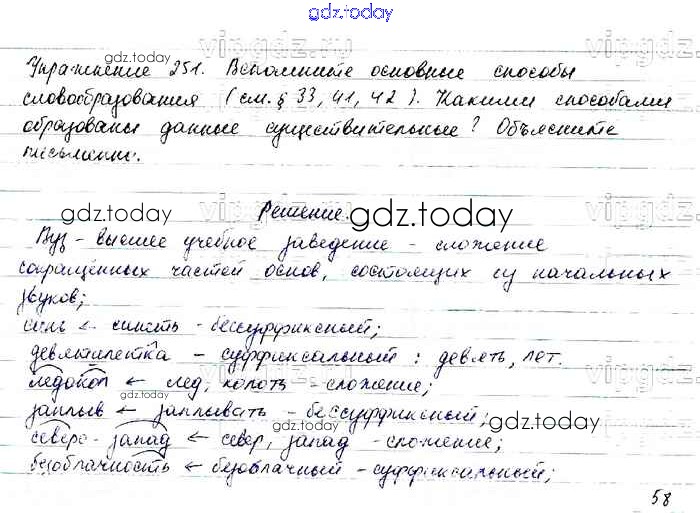 gdz.today
Упражнение 251. Вспомните основные способы
словообразования (см. § 33, 41, 42). Какими способами
образованы данные существительные? Объясните
письменно.
Решение.
Вуз - высшее учебное заведение - сложение
сокращённых частей основ, состоящих из начальных
звуков;
синь ← синеть - бессуффиксный;
девятилетка - суффиксальный : девять, лет.
ледокол ← лед, колоть - сложение;
заплыв ← заплывать - бессуффиксный;
северо-запад ← север, запад - сложение;
безоблачность ← безоблачный - суффиксальный;
58